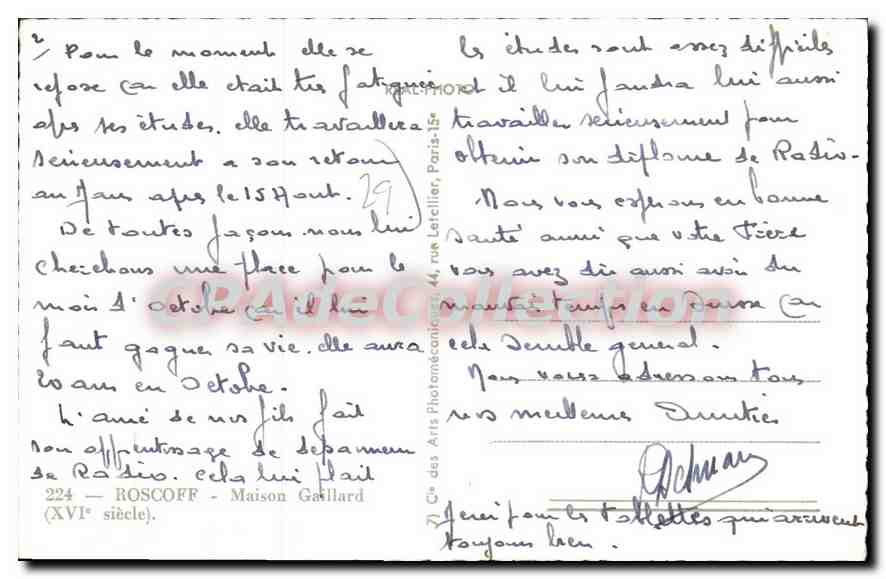 2/ Pour le moment elle se
repose car elle etait tres fatiguée
aprs ses études. elle travaillera
serieusement a son retour
au Mans apres le 15 Aout.
29
De toutes façons nous lui
cherchons une place pour le
mois d'octobre car il lui
faut gagner sa vie. elle aura
20 ans en Octobre.
L'ainé de nos fils fait
son apprentissage de depanneur
de Radio. cela lui plait
224 — ROSCOFF - Maison Gaillard
(XVIe siècle).
REAL-PHOTO
Cie des Arts Photomécaniques, 44, rue Letellier, Paris-15e
les études sont assez difficiles
et il lui faudra lui aussi
travailler serieusement pour
obtenir son diplome de Radio.
Nous vous esperons en bonne
santé ainsi que votre Frère
vous avez dû aussi avoir du
mauvais temps en Suisse car
cela semble general.
Nous vous adressons tous
nos meilleures Amitiés
Merci pour les tablettes qui arrivent
toujours bien.
CPAdeCollection